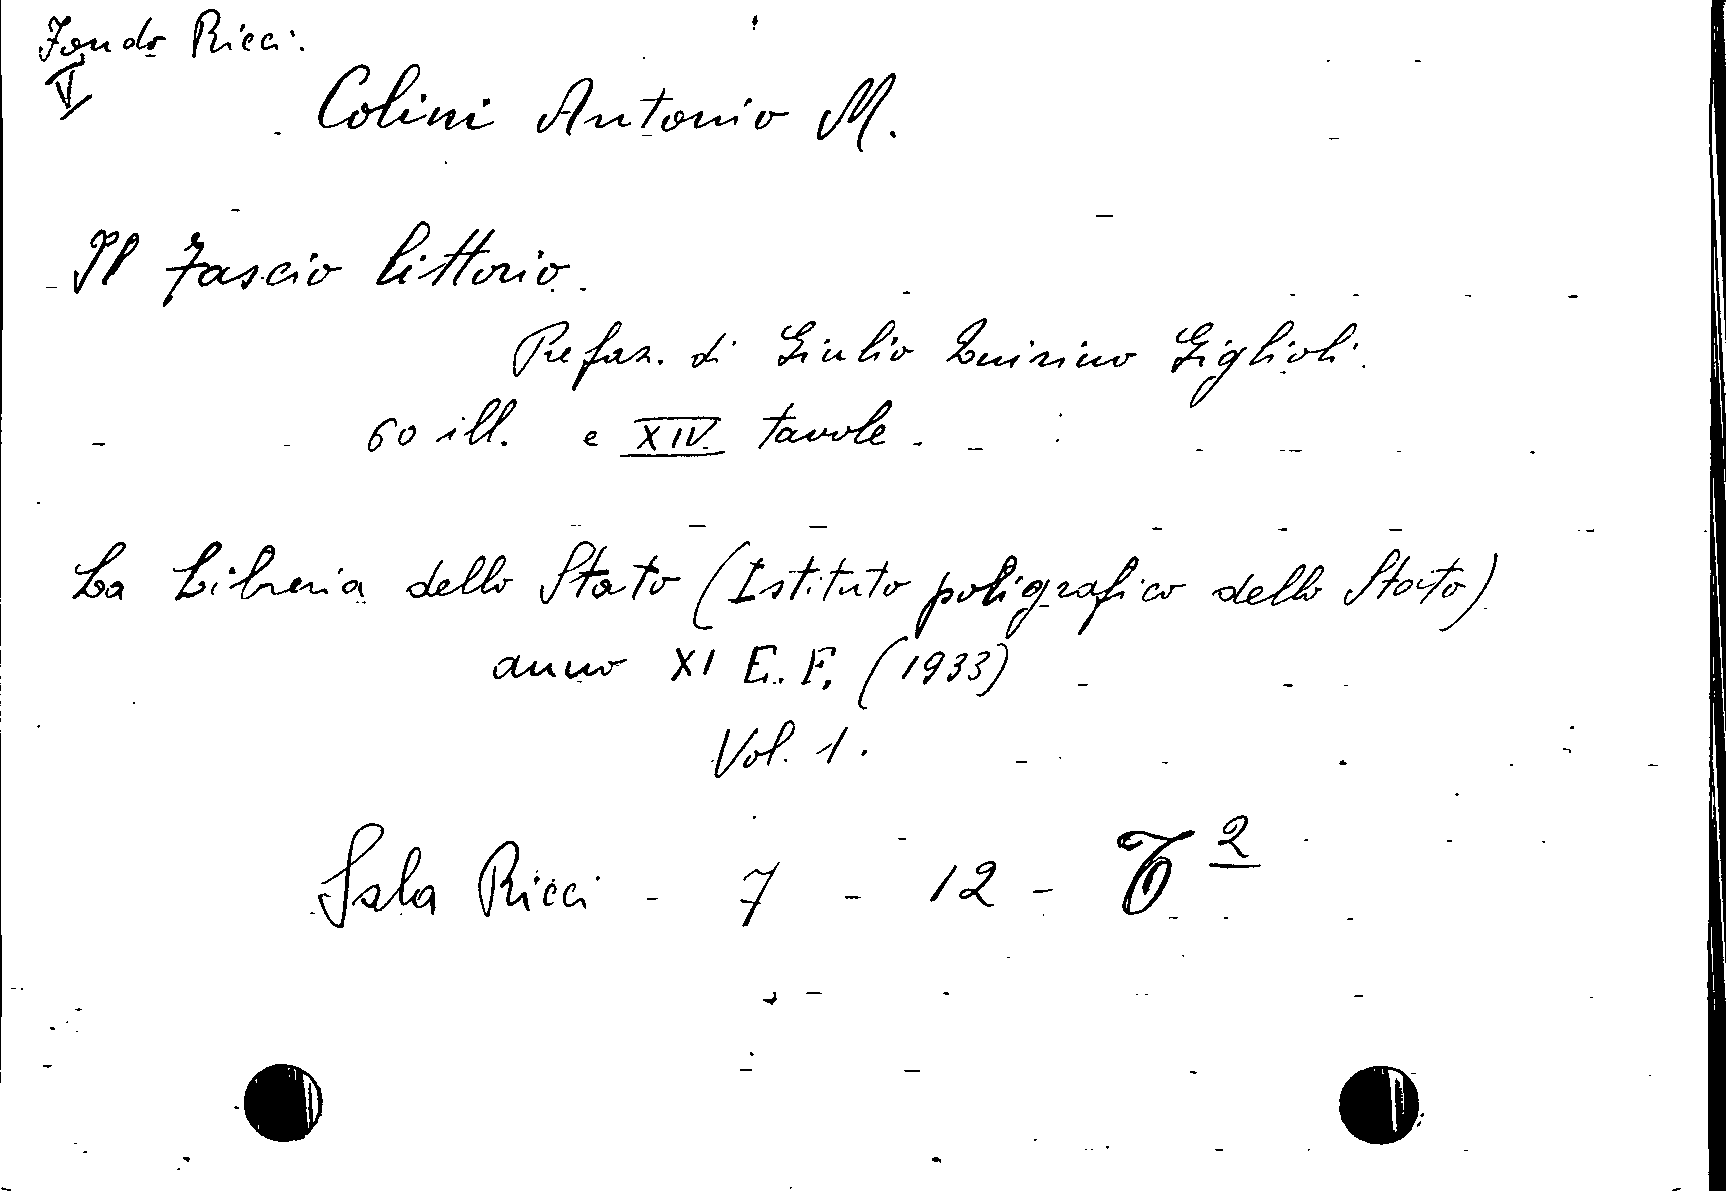 Fondo Ricci.
V
Colini Antonio M.
Il Fascio littorio.
Prefaz. di Giulio Quirino Giglioli.
60 ill. e XIV tavole.
La Libreria dello Stato (Istituto poligrafico dello Stato)
anno XI E. F. (1933)
Vol. 1.
Sala Ricci - 7 - 12 - T 2